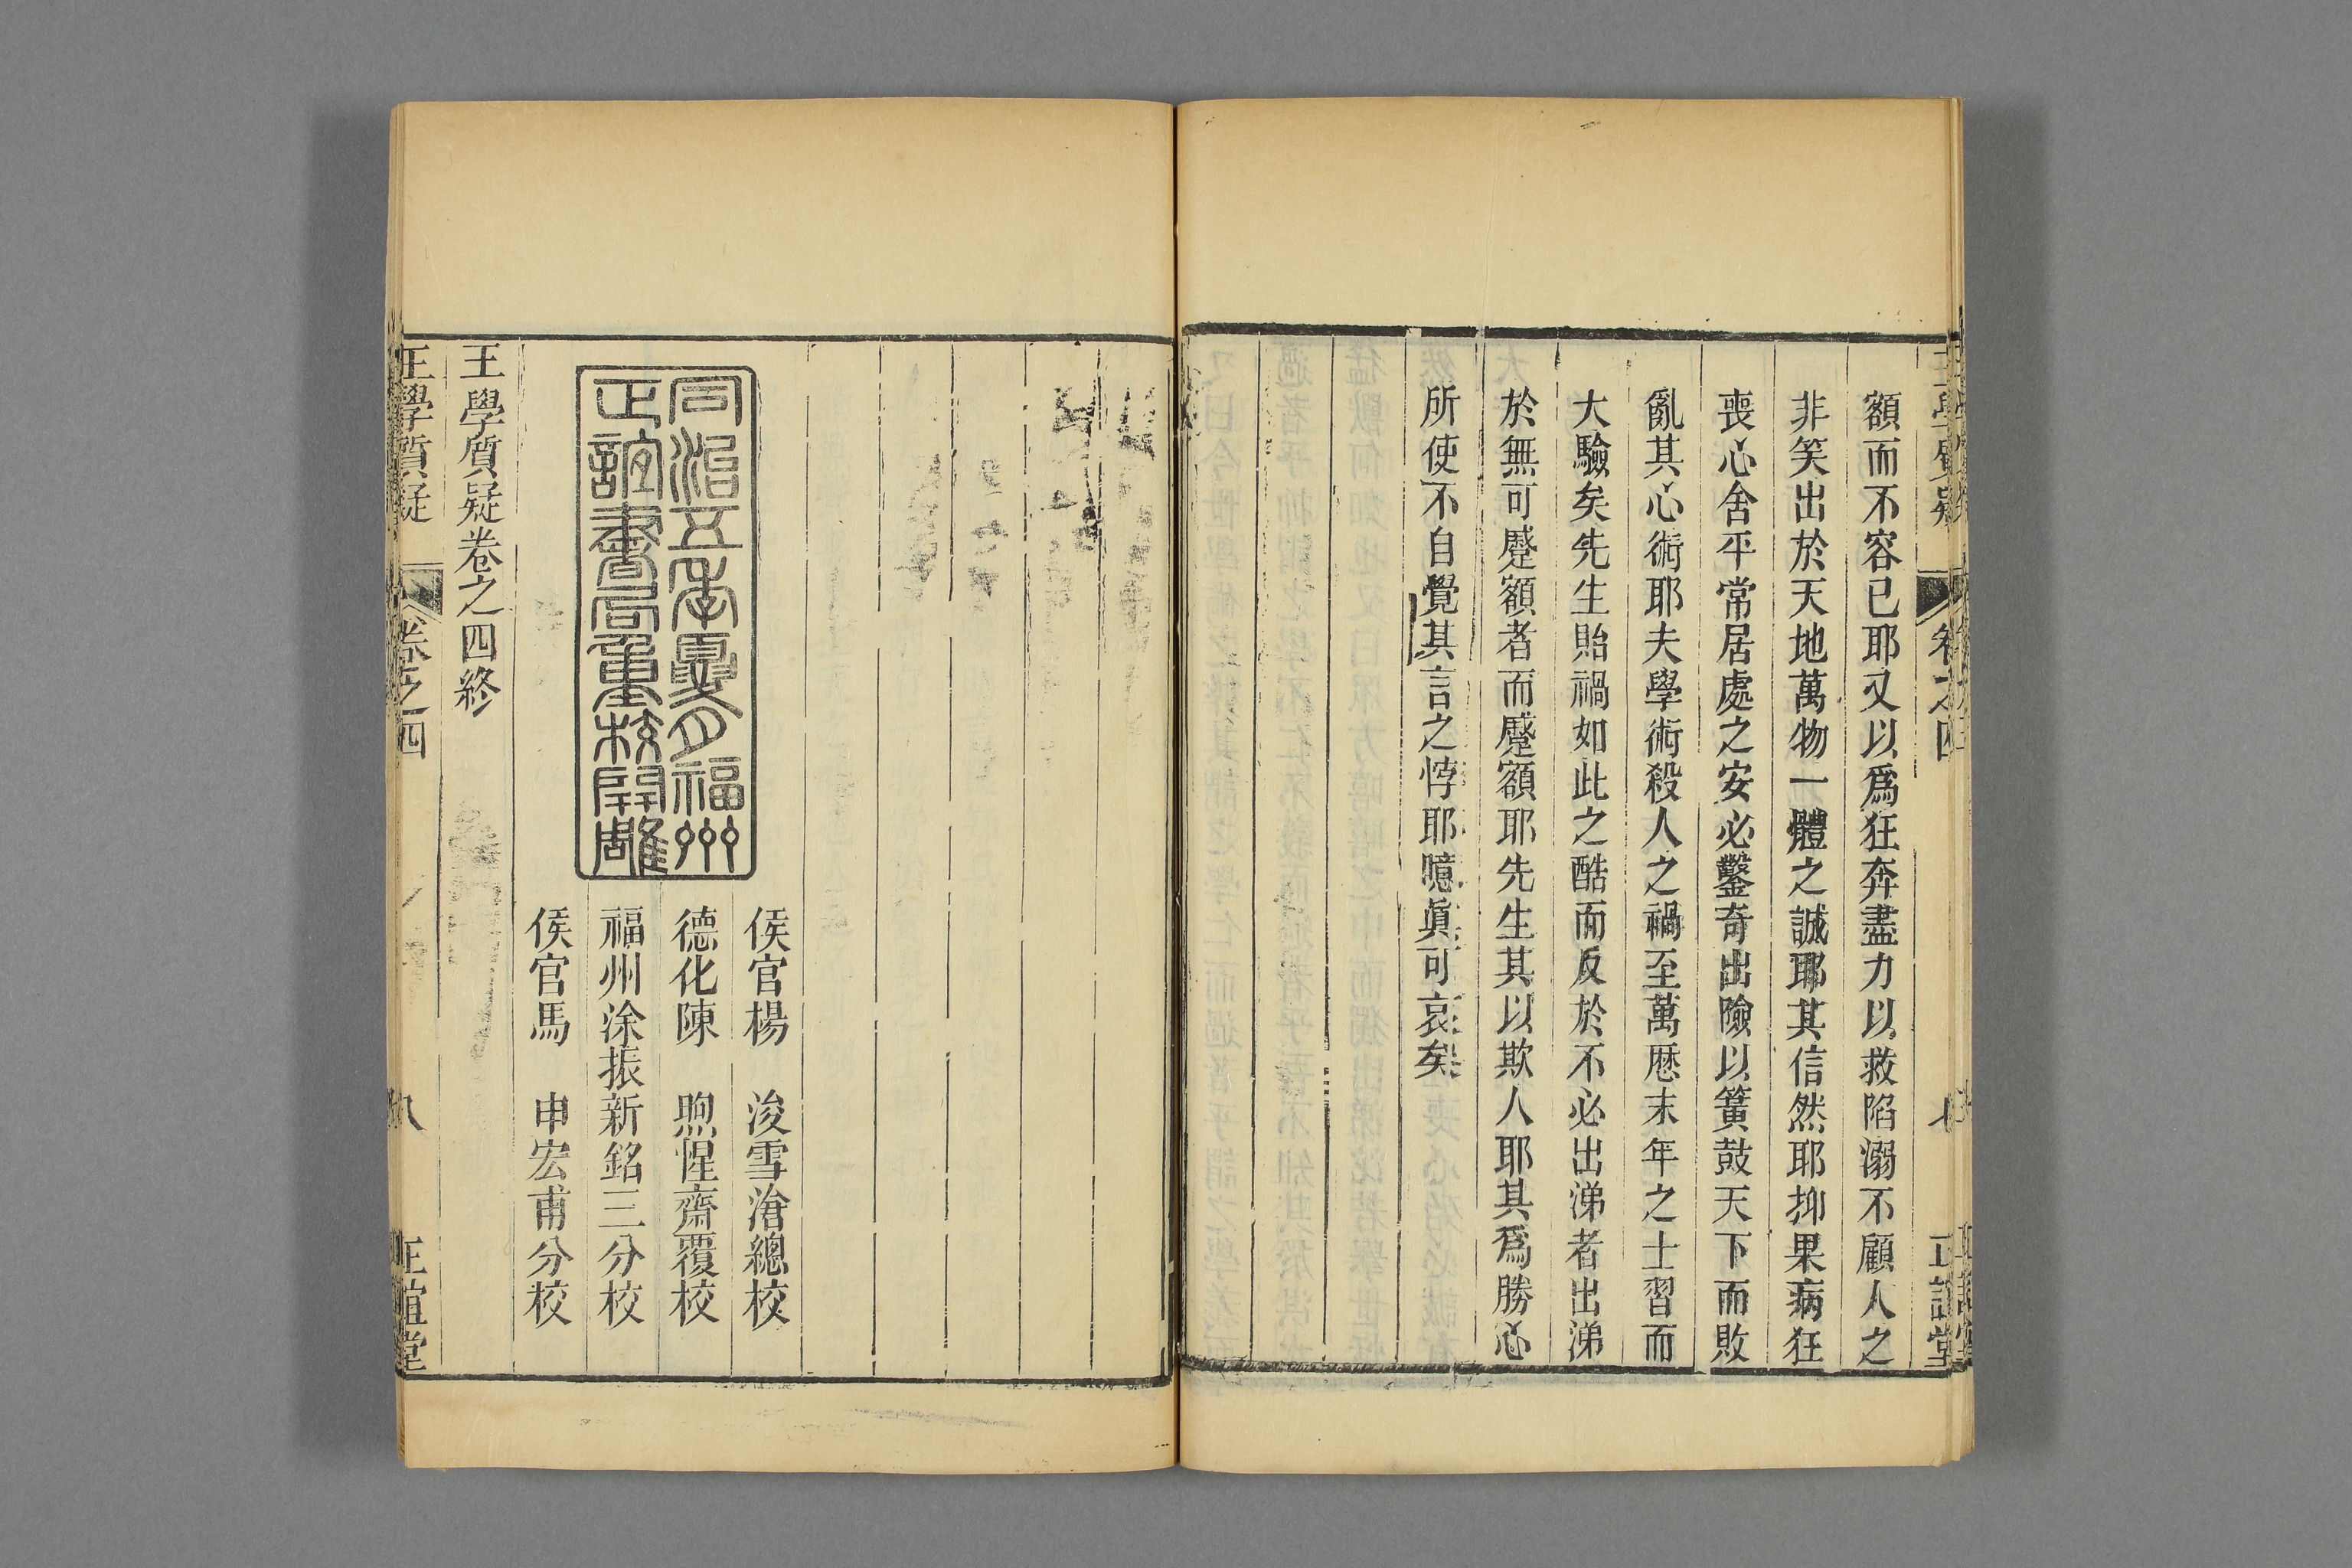 王學質疑 卷之四 七 正誼堂
額而不容已耶又以爲狂奔盡力以救陷溺不顧人之
非笑出於天地萬物一體之誠耶其信然耶抑果病狂
喪心舍平常居處之安必鑿奇出險以簧鼓天下而敗
亂其心術耶夫學術殺人之禍至萬厯末年之士習而
大驗矣先生貽禍如此之酷而反於不必出涕者出涕
於無可蹙額者而蹙額耶先生其以欺人耶其爲勝心
所使不自覺其言之悖耶噫眞可哀矣
侯官楊 浚雪滄總校
德化陳 煦惺齋覆校
福州涂振新銘三分校
侯官馬 申宏甫分校
同治五年夏月福州
正誼書局重校開雕
王學質疑卷之四終
王學質疑 卷之四 八 正誼堂